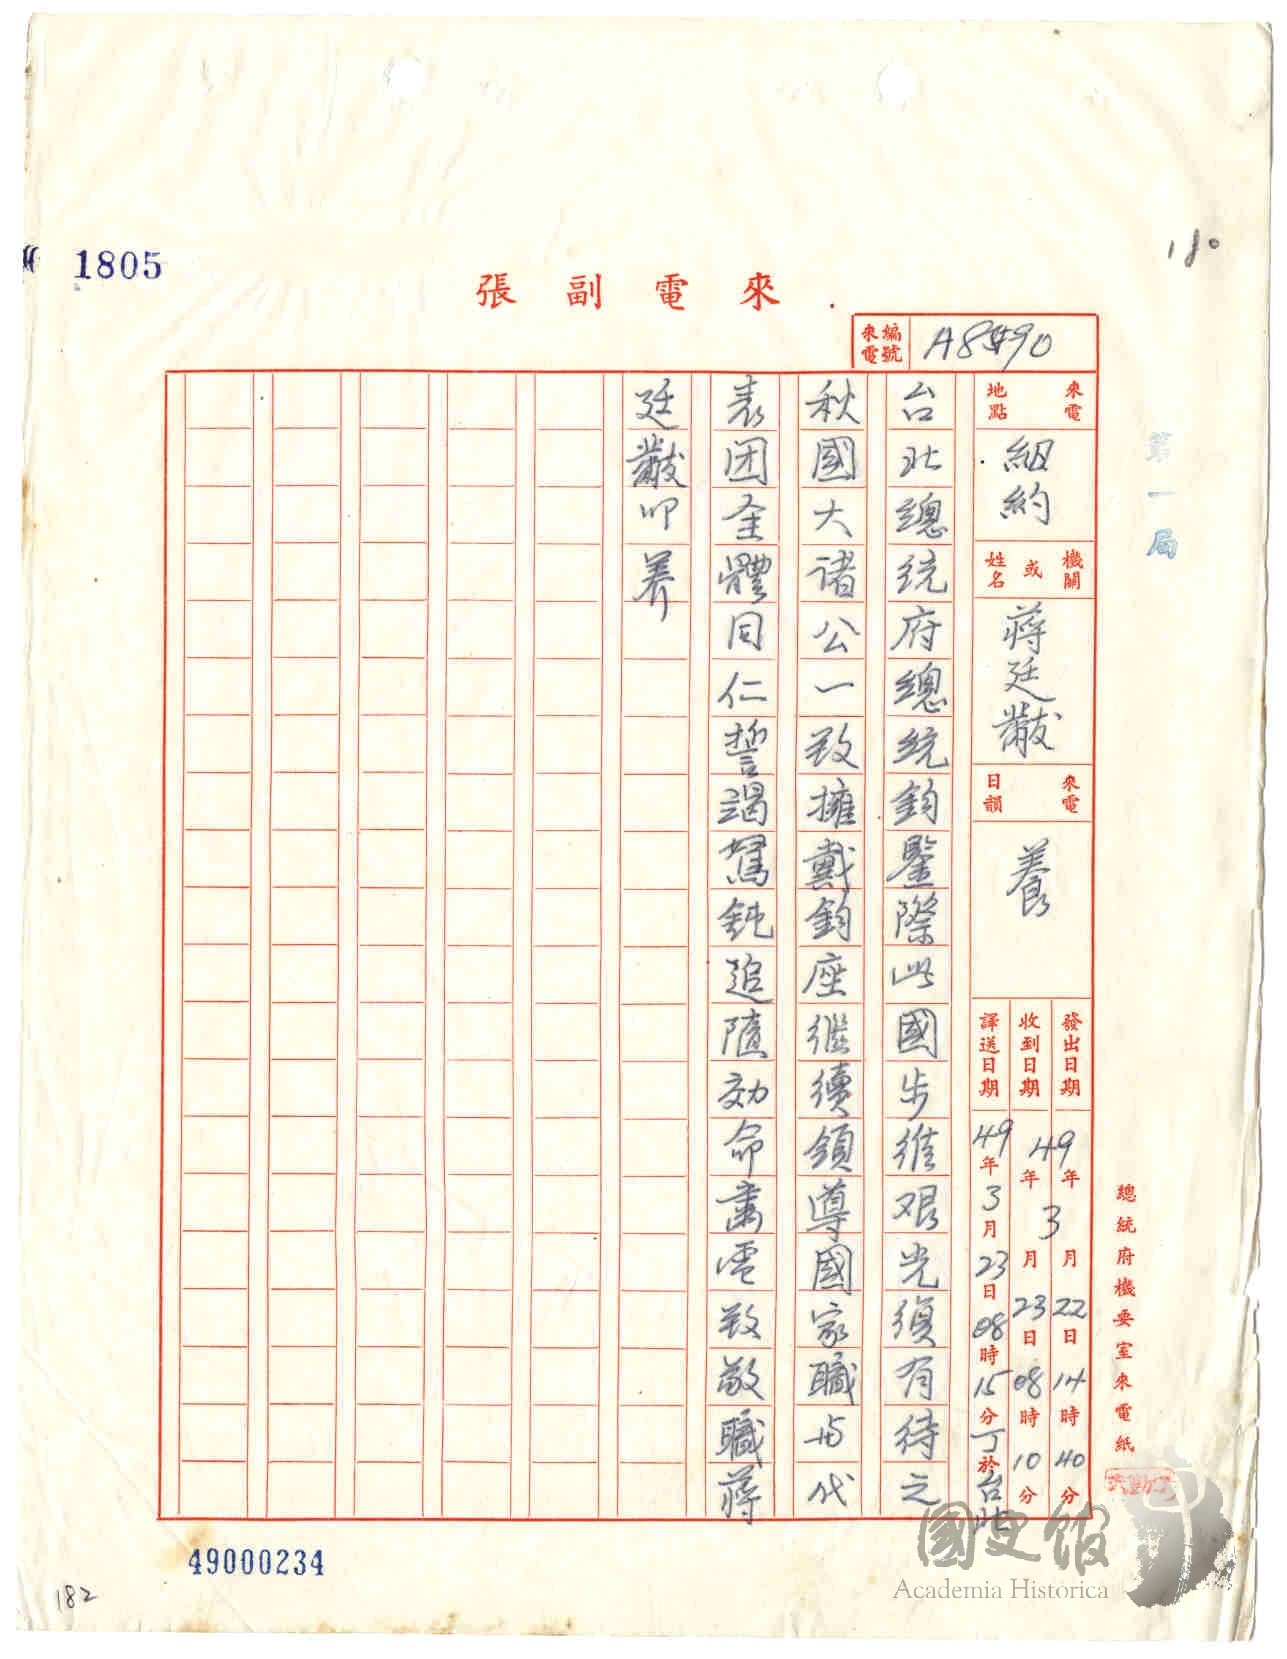 1805
180
來電副張
來電編號 A8490
第一局
來電地點 紐約
機關或姓名 蔣廷黻
來電日韻 養
發出日期 49年3月22日14時40分
收到日期 49年3月23日08時10分
譯送日期 49年3月23日08時15分丁於台北
台北總統府總統鈞鑒際此國步維艱光須有待之
秋國大諸公一致擁戴鈞座繼續領導國家職与代
表团全體同仁誓竭駑鈍追隨効命肅電致敬職蔣
廷黻叩养
總統府機要室來電紙
49000234
182
國史館
Academia Historica